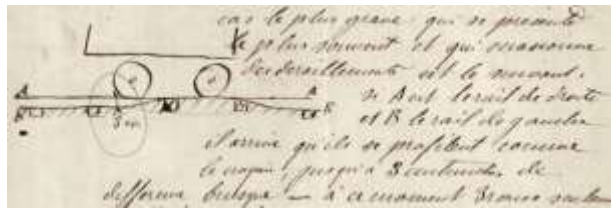 cas le plus grave qui se présente
le plus souvent et qui occasionne
des déraillements est le suivant.
A A
si A est le rail de droite
B B
et B le rail de gauche
3 cm
il arrive qu'ils se profilent comme
le croquis, jusqu'à 3 centimètres de
différence brusque — à ce moment 3 roues